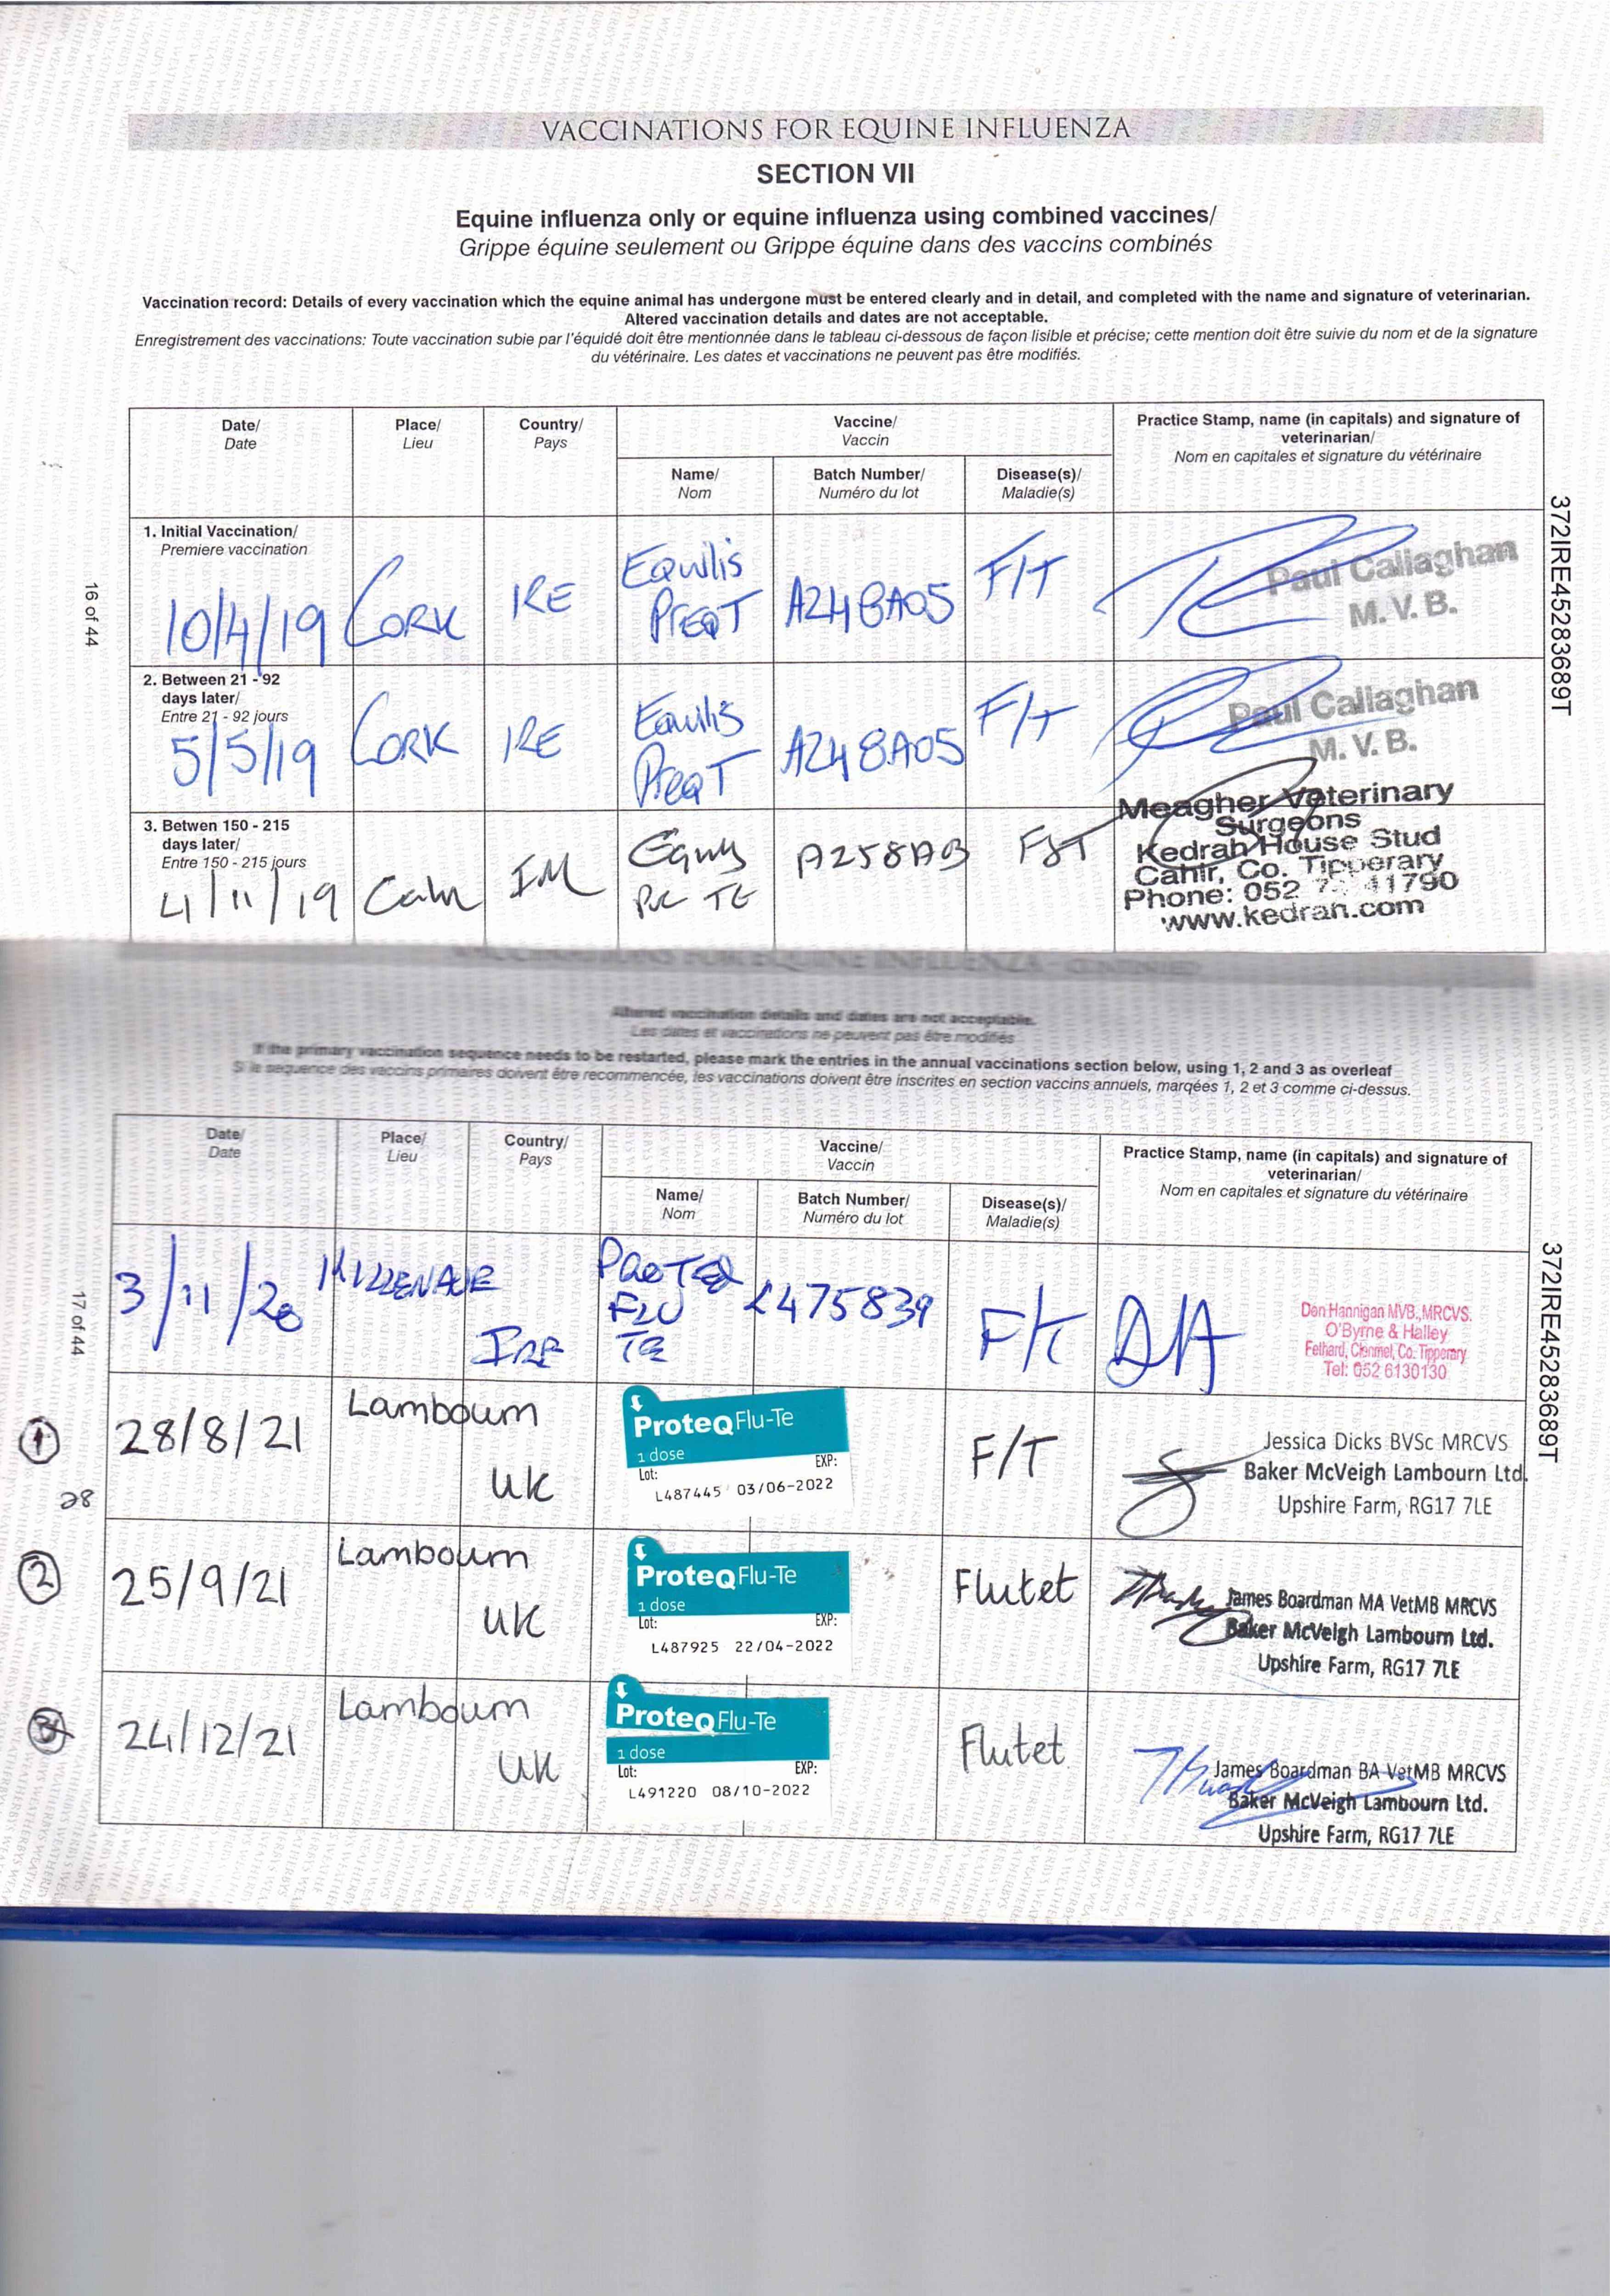 VACCINATIONS FOR EQUINE INFLUENZA
SECTION VII
Equine influenza only or equine influenza using combined vaccines/
Grippe équine seulement ou Grippe équine dans des vaccins combinés
Vaccination record: Details of every vaccination which the equine animal has undergone must be entered clearly and in detail, and completed with the name and signature of veterinarian.
Altered vaccination details and dates are not acceptable.
Enregistrement des vaccinations: Toute vaccination subie par l'équidé doit être mentionnée dans le tableau ci-dessous de façon lisible et précise; cette mention doit être suivie du nom et de la signature
du vétérinaire. Les dates et vaccinations ne peuvent pas être modifiés.
Date/ Place/ Country/ Vaccine/ Practice Stamp, name (in capitals) and signature of
Date Lieu Pays Vaccin veterinarian/
Nom en capitales et signature du vétérinaire
Name/ Batch Number/ Disease(s)/
Nom Numéro du lot Maladie(s)
1. Initial Vaccination/
Premiere vaccination
10/4/19 CORK IRE Equilis PreqT A248A05 F/T
Paul Callaghan
M. V. B.
2. Between 21 - 92
days later/
Entre 21 - 92 jours
5/5/19 CORK IRE Equilis PreqT A248A05 F/T
Paul Callaghan
M. V. B.
3. Betwen 150 - 215
days later/
Entre 150 - 215 jours
4/11/19
Meagher Veterinary
Surgeons
Kedrah House Stud
Cahir, Co. Tipperary
Phone: 052 41790
www.kedrah.com
16 of 44
372IRE45283689T
VACCINATIONS FOR EQUINE INFLUENZA - CONTINUED
Altered vaccination details and dates are not acceptable.
Les dates et vaccinations ne peuvent pas être modifiés
If the primary vaccination sequence needs to be restarted, please mark the entries in the annual vaccinations section below, using 1, 2 and 3 as overleaf
Si le sequence des vaccins primaires doivent être recommencée, les vaccinations doivent être inscrites en section vaccins annuels, marqées 1, 2 et 3 comme ci-dessus.
Date/ Place/ Country/ Vaccine/ Practice Stamp, name (in capitals) and signature of
Date Lieu Pays Vaccin veterinarian/
Nom en capitales et signature du vétérinaire
Name/ Batch Number/ Disease(s)/
Nom Numéro du lot Maladie(s)
3/11/20 KILLENAULE IRE PROTEQ FLU TE L475839 F/T
Dan Hannigan MVB.,MRCVS.
O'Byrne & Halley
Fethard, Clonmel, Co. Tipperary
Tel: 052 6130130
1 28/8/21 Lambourn UK F/T
28
ProteqFlu-Te
1 dose
Lot: EXP:
L487445 03/06-2022
Jessica Dicks BVSc MRCVS
Baker McVeigh Lambourn Ltd.
Upshire Farm, RG17 7LE
2 25/9/21 Lambourn UK Flutet
ProteqFlu-Te
1 dose
Lot: EXP:
L487925 22/04-2022
James Boardman MA VetMB MRCVS
Baker McVeigh Lambourn Ltd.
Upshire Farm, RG17 7LE
3 24/12/21 Lambourn UK Flutet
ProteqFlu-Te
1 dose
Lot: EXP:
L491220 08/10-2022
James Boardman BA VetMB MRCVS
Baker McVeigh Lambourn Ltd.
Upshire Farm, RG17 7LE
17 of 44
372IRE45283689T